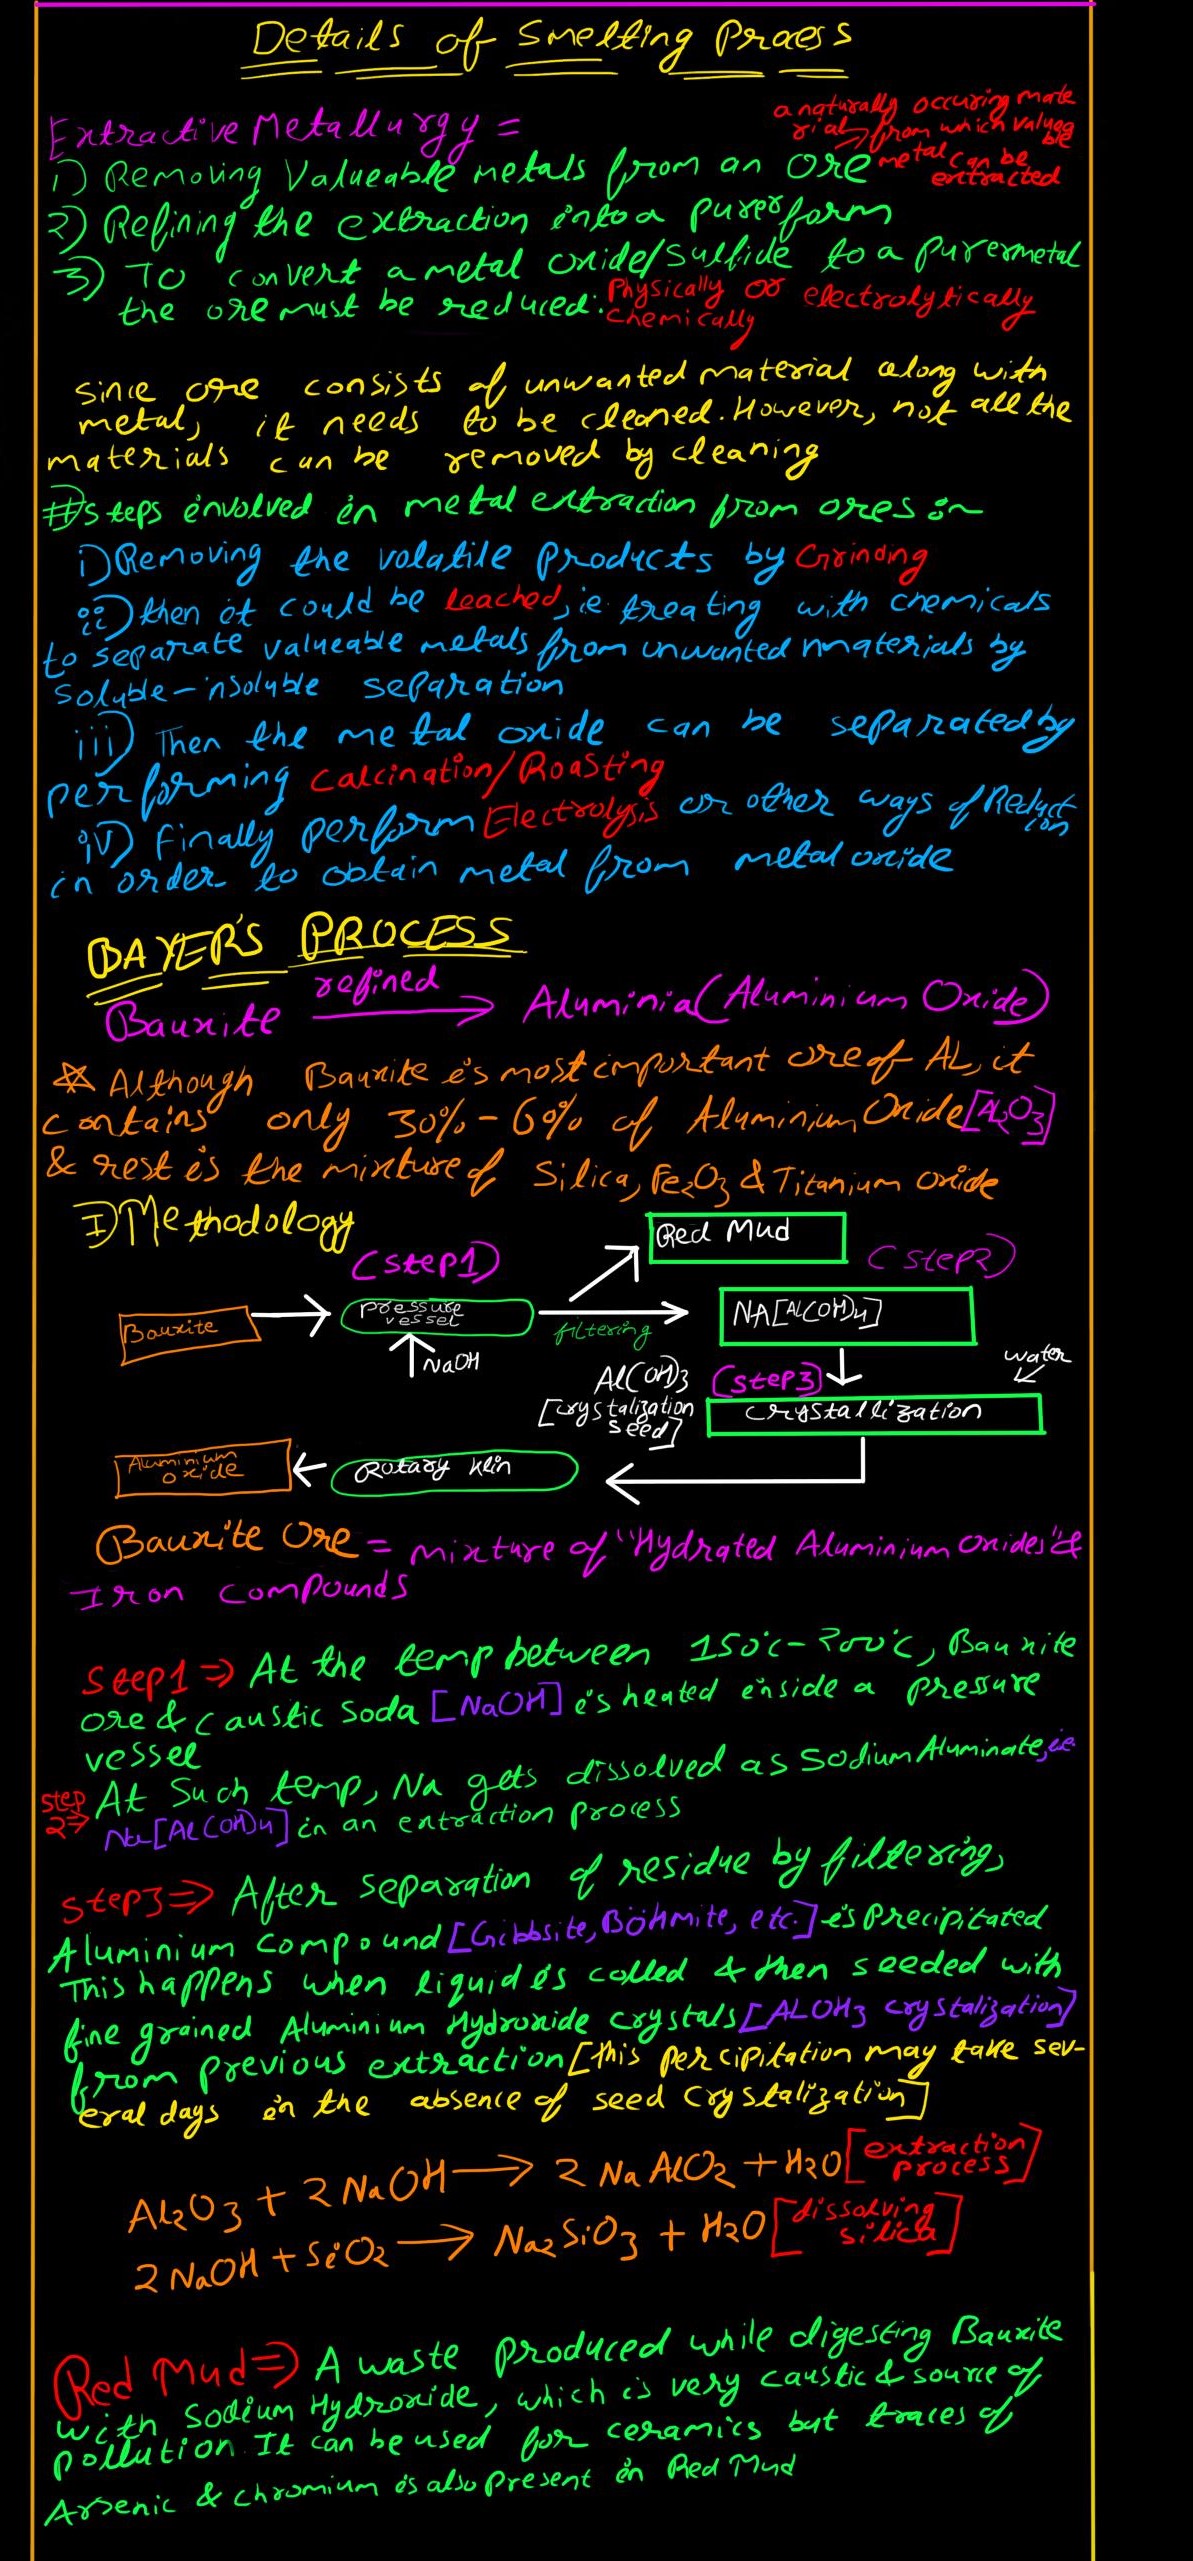 Details of Smelting Process
Extractive Metallurgy =
a naturally occuring mate
rial from which valuea
ble
metal can be
extracted
1) Removing Valueable metals from an ore
2) Refining the extraction into a purer form
3) To convert a metal oxide/sulfide to a purer metal
the ore must be reduced: Physically or electrolytically
chemically
Since ore consists of unwanted material along with
metal, it needs to be cleaned. However, not all the
materials can be removed by cleaning
# Steps involved in metal extraction from ores :~
i) Removing the volatile products by Grinding
ii) then it could be leached, i.e. treating with chemicals
to separate valueable metals from unwanted materials by
Soluble-insoluble separation
iii) Then the metal oxide can be separated by
performing Calcination/Roasting
iv) Finally perform Electrolysis or other ways of Reduct
ion
in order to obtain metal from metal oxide
BAYER'S PROCESS
refined
Bauxite → Aluminia (Aluminium Oxide)
☆ Although Bauxite is most important ore of AL, it
contains only 30%-60% of Aluminium Oxide [Al2O3]
& rest is the mixture of Silica, Fe2O3 & Titanium oxide
I) Methodology
Red Mud
(step1)
(step2)
Bauxite
pressure
vessel
filtering
NA[Al(OH)4]
NaOH
water
Al(OH)3
(step3)
[crystalization
seed]
crystallization
Aluminium
oxide
Rotary klin
Bauxite Ore = mixture of "Hydrated Aluminium oxides" &
Iron compounds
Step1 ⇒ At the temp between 150°c-200°c, Bauxite
ore & caustic soda [NaOH] is heated inside a pressure
vessel
step
2⇒
At Such temp, Na gets dissolved as Sodium Aluminate, i.e.
Na[Al(OH)4] in an extraction process
Step3 ⇒ After separation of residue by filtering,
Aluminium compound [Gibbsite, Böhmite, etc.] is precipitated
This happens when liquid is colled & then seeded with
fine grained Aluminium Hydroxide crystals [ALOH3 crystalization]
from previous extraction [this percipitation may take sev-
eral days in the absence of seed crystalization]
Al2O3 + 2 NaOH → 2 NaAlO2 + H2O [extraction
process]
2 NaOH + SiO2 → Na2SiO3 + H2O [dissolving
silica]
Red Mud ⇒ A waste produced while digesting Bauxite
with Sodium Hydroxide, which is very caustic & source of
pollution. It can be used for ceramics but traces of
Arsenic & chromium is also present in Red Mud